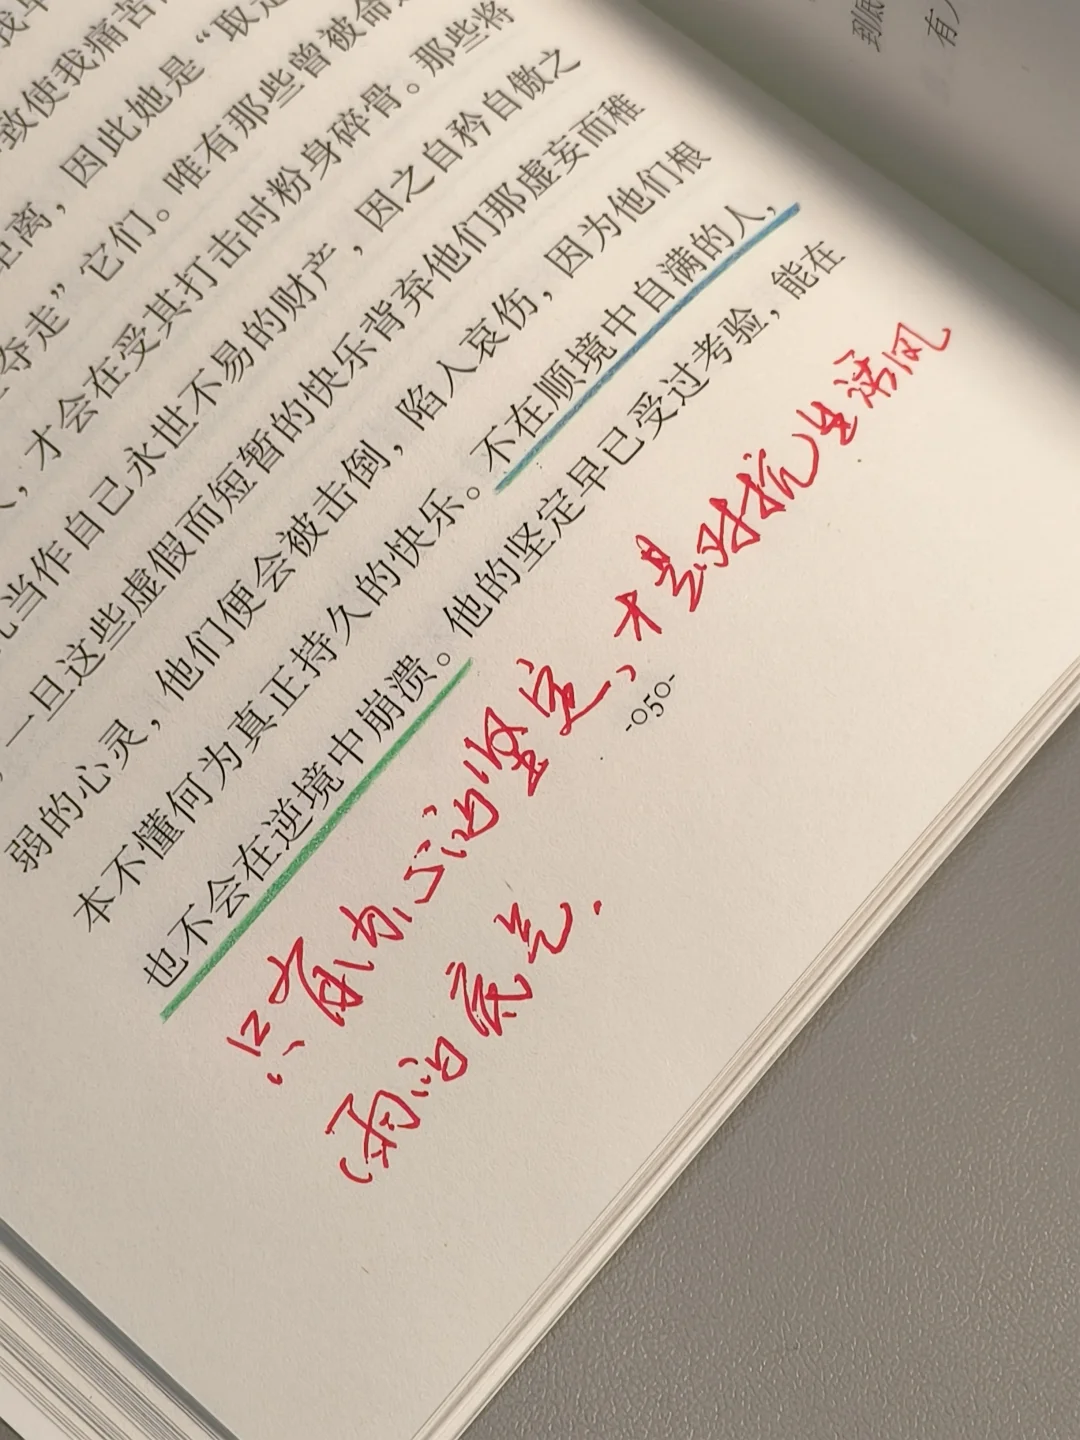 致使我痛苦
距离，因此她是“取走
夺走”它们。唯有那些曾被命
，才会在受其打击时粉身碎骨。那些将
当作自己永世不易的财产，因之自矜自傲之
一旦这些虚假而短暂的快乐背弃他们那虚妄而稚
弱的心灵，他们便会被击倒，陷入哀伤，因为他们根
本不懂何为真正持久的快乐。不在顺境中自满的人，
也不会在逆境中崩溃。他的坚定早已受过考验，能在
-050-
只有内心的坚定，才是对抗生活风
雨的底气.
到底
有